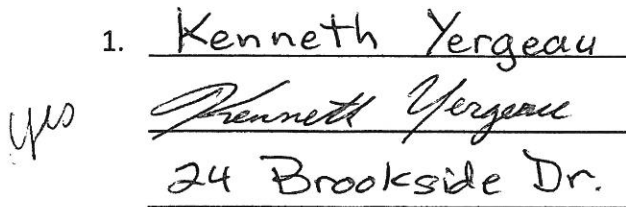 1. Kenneth Yergeau
yes Kenneth Yergeau
24 Brookside Dr.